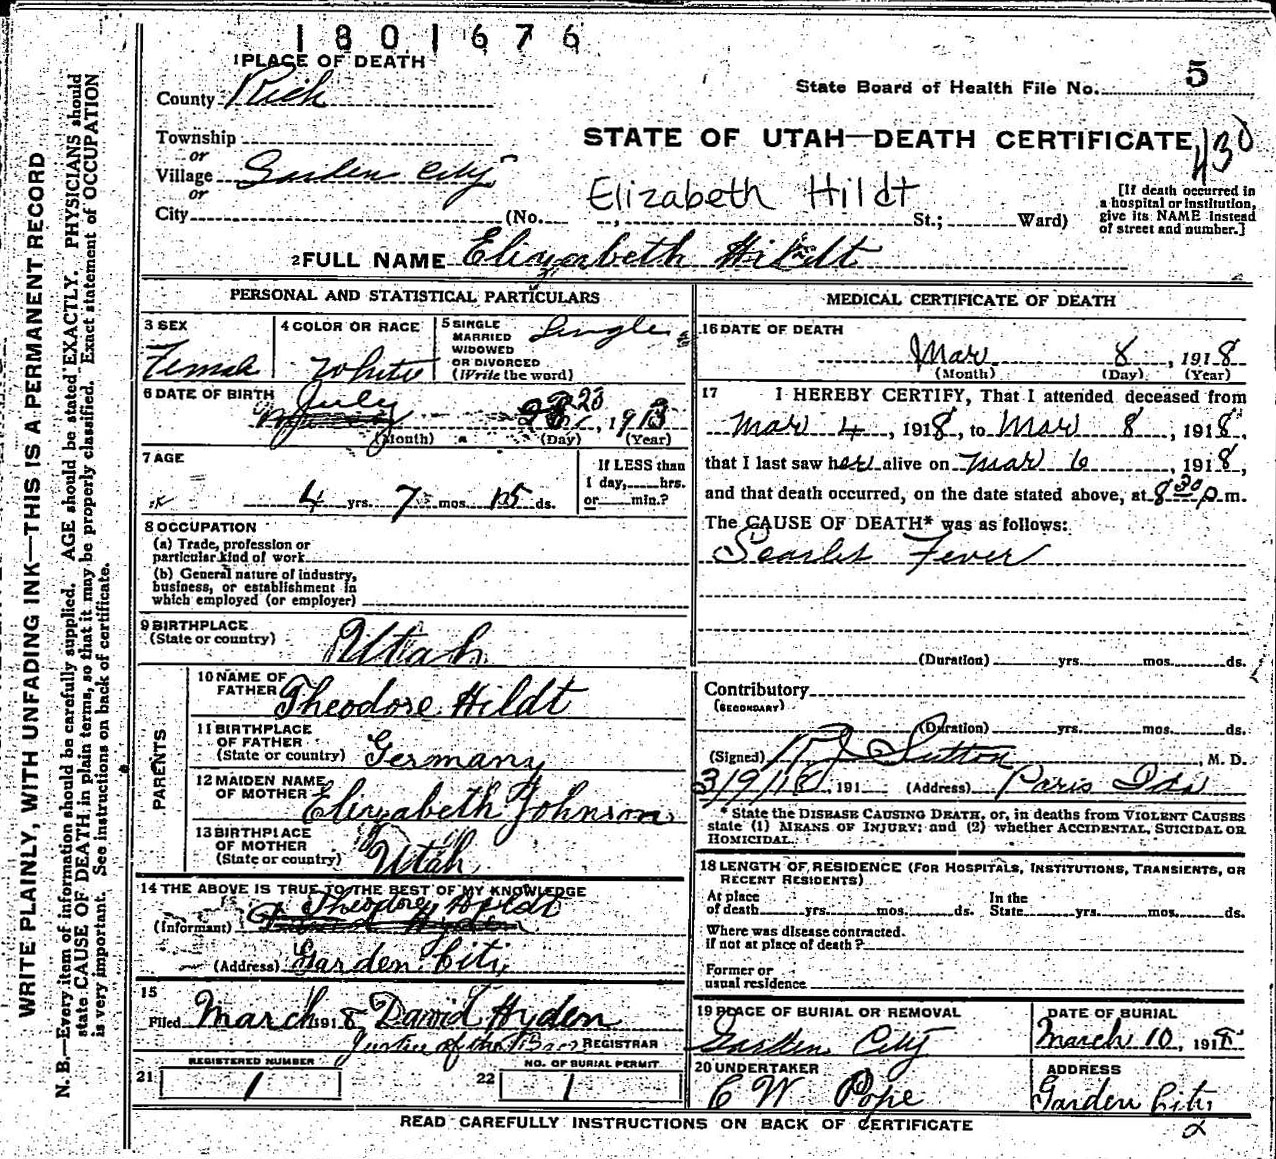 1801676
1 PLACE OF DEATH
County Rich
State Board of Health File No. 5
Township
or
Village Garden City
or
City (No. , St.; Ward)
STATE OF UTAH—DEATH CERTIFICATE 430
Elizabeth Hildt
[If death occurred in
a hospital or institution,
give its NAME instead
of street and number.]
2 FULL NAME Elizabeth Hildt
PERSONAL AND STATISTICAL PARTICULARS
3 SEX
Female
4 COLOR OR RACE
White
5 SINGLE
MARRIED
WIDOWED
OR DIVORCED
(Write the word)
Single
6 DATE OF BIRTH
July 23, 1913
(Month) (Day) (Year)
7 AGE
4 yrs. 7 mos. 15 ds.
If LESS than
1 day, hrs.
or min.?
8 OCCUPATION
(a) Trade, profession or
particular kind of work
(b) General nature of industry,
business, or establishment in
which employed (or employer)
9 BIRTHPLACE
(State or country) Utah
PARENTS
10 NAME OF
FATHER Theodore Hildt
11 BIRTHPLACE
OF FATHER
(State or country) Germany
12 MAIDEN NAME
OF MOTHER Elizabeth Johnson
13 BIRTHPLACE
OF MOTHER
(State or country) Utah
14 THE ABOVE IS TRUE TO THE BEST OF MY KNOWLEDGE
Theodore Hildt
(Informant) David Hyden
(Address) Garden City
15
Filed March 1918 David Hyden
Justice of the Peace REGISTRAR
REGISTERED NUMBER
21 1
NO. OF BURIAL PERMIT
22 1
MEDICAL CERTIFICATE OF DEATH
16 DATE OF DEATH
Mar 8, 1918
(Month) (Day) (Year)
17 I HEREBY CERTIFY, That I attended deceased from
Mar 4, 1918, to Mar 8, 1918,
that I last saw her alive on Mar 6, 1918,
and that death occurred, on the date stated above, at 8 30 p.m.
The CAUSE OF DEATH* was as follows:
Scarlet Fever
(Duration) yrs. mos. ds.
Contributory
(SECONDARY)
(Duration) yrs. mos. ds.
(Signed) Sutton, M. D.
3/9/18, 191 (Address) Paris Ida
* State the DISEASE CAUSING DEATH, or, in deaths from VIOLENT CAUSES
state (1) MEANS OF INJURY; and (2) whether ACCIDENTAL, SUICIDAL OR
HOMICIDAL.
18 LENGTH OF RESIDENCE (FOR HOSPITALS, INSTITUTIONS, TRANSIENTS, OR
RECENT RESIDENTS)
At place
of death yrs. mos. ds.
In the
State yrs. mos. ds.
Where was disease contracted.
if not at place of death?
Former or
usual residence
19 PLACE OF BURIAL OR REMOVAL
Garden City
DATE OF BURIAL
March 10, 1918
20 UNDERTAKER
C W Pope
ADDRESS
Garden City
2
READ CAREFULLY INSTRUCTIONS ON BACK OF CERTIFICATE
WRITE PLAINLY, WITH UNFADING INK—THIS IS A PERMANENT RECORD
N. B.—Every item of information should be carefully supplied. AGE should be stated EXACTLY. PHYSICIANS should
state CAUSE OF DEATH in plain terms, so that it may be properly classified. Exact statement of OCCUPATION
is very important. See instructions on back of certificate.